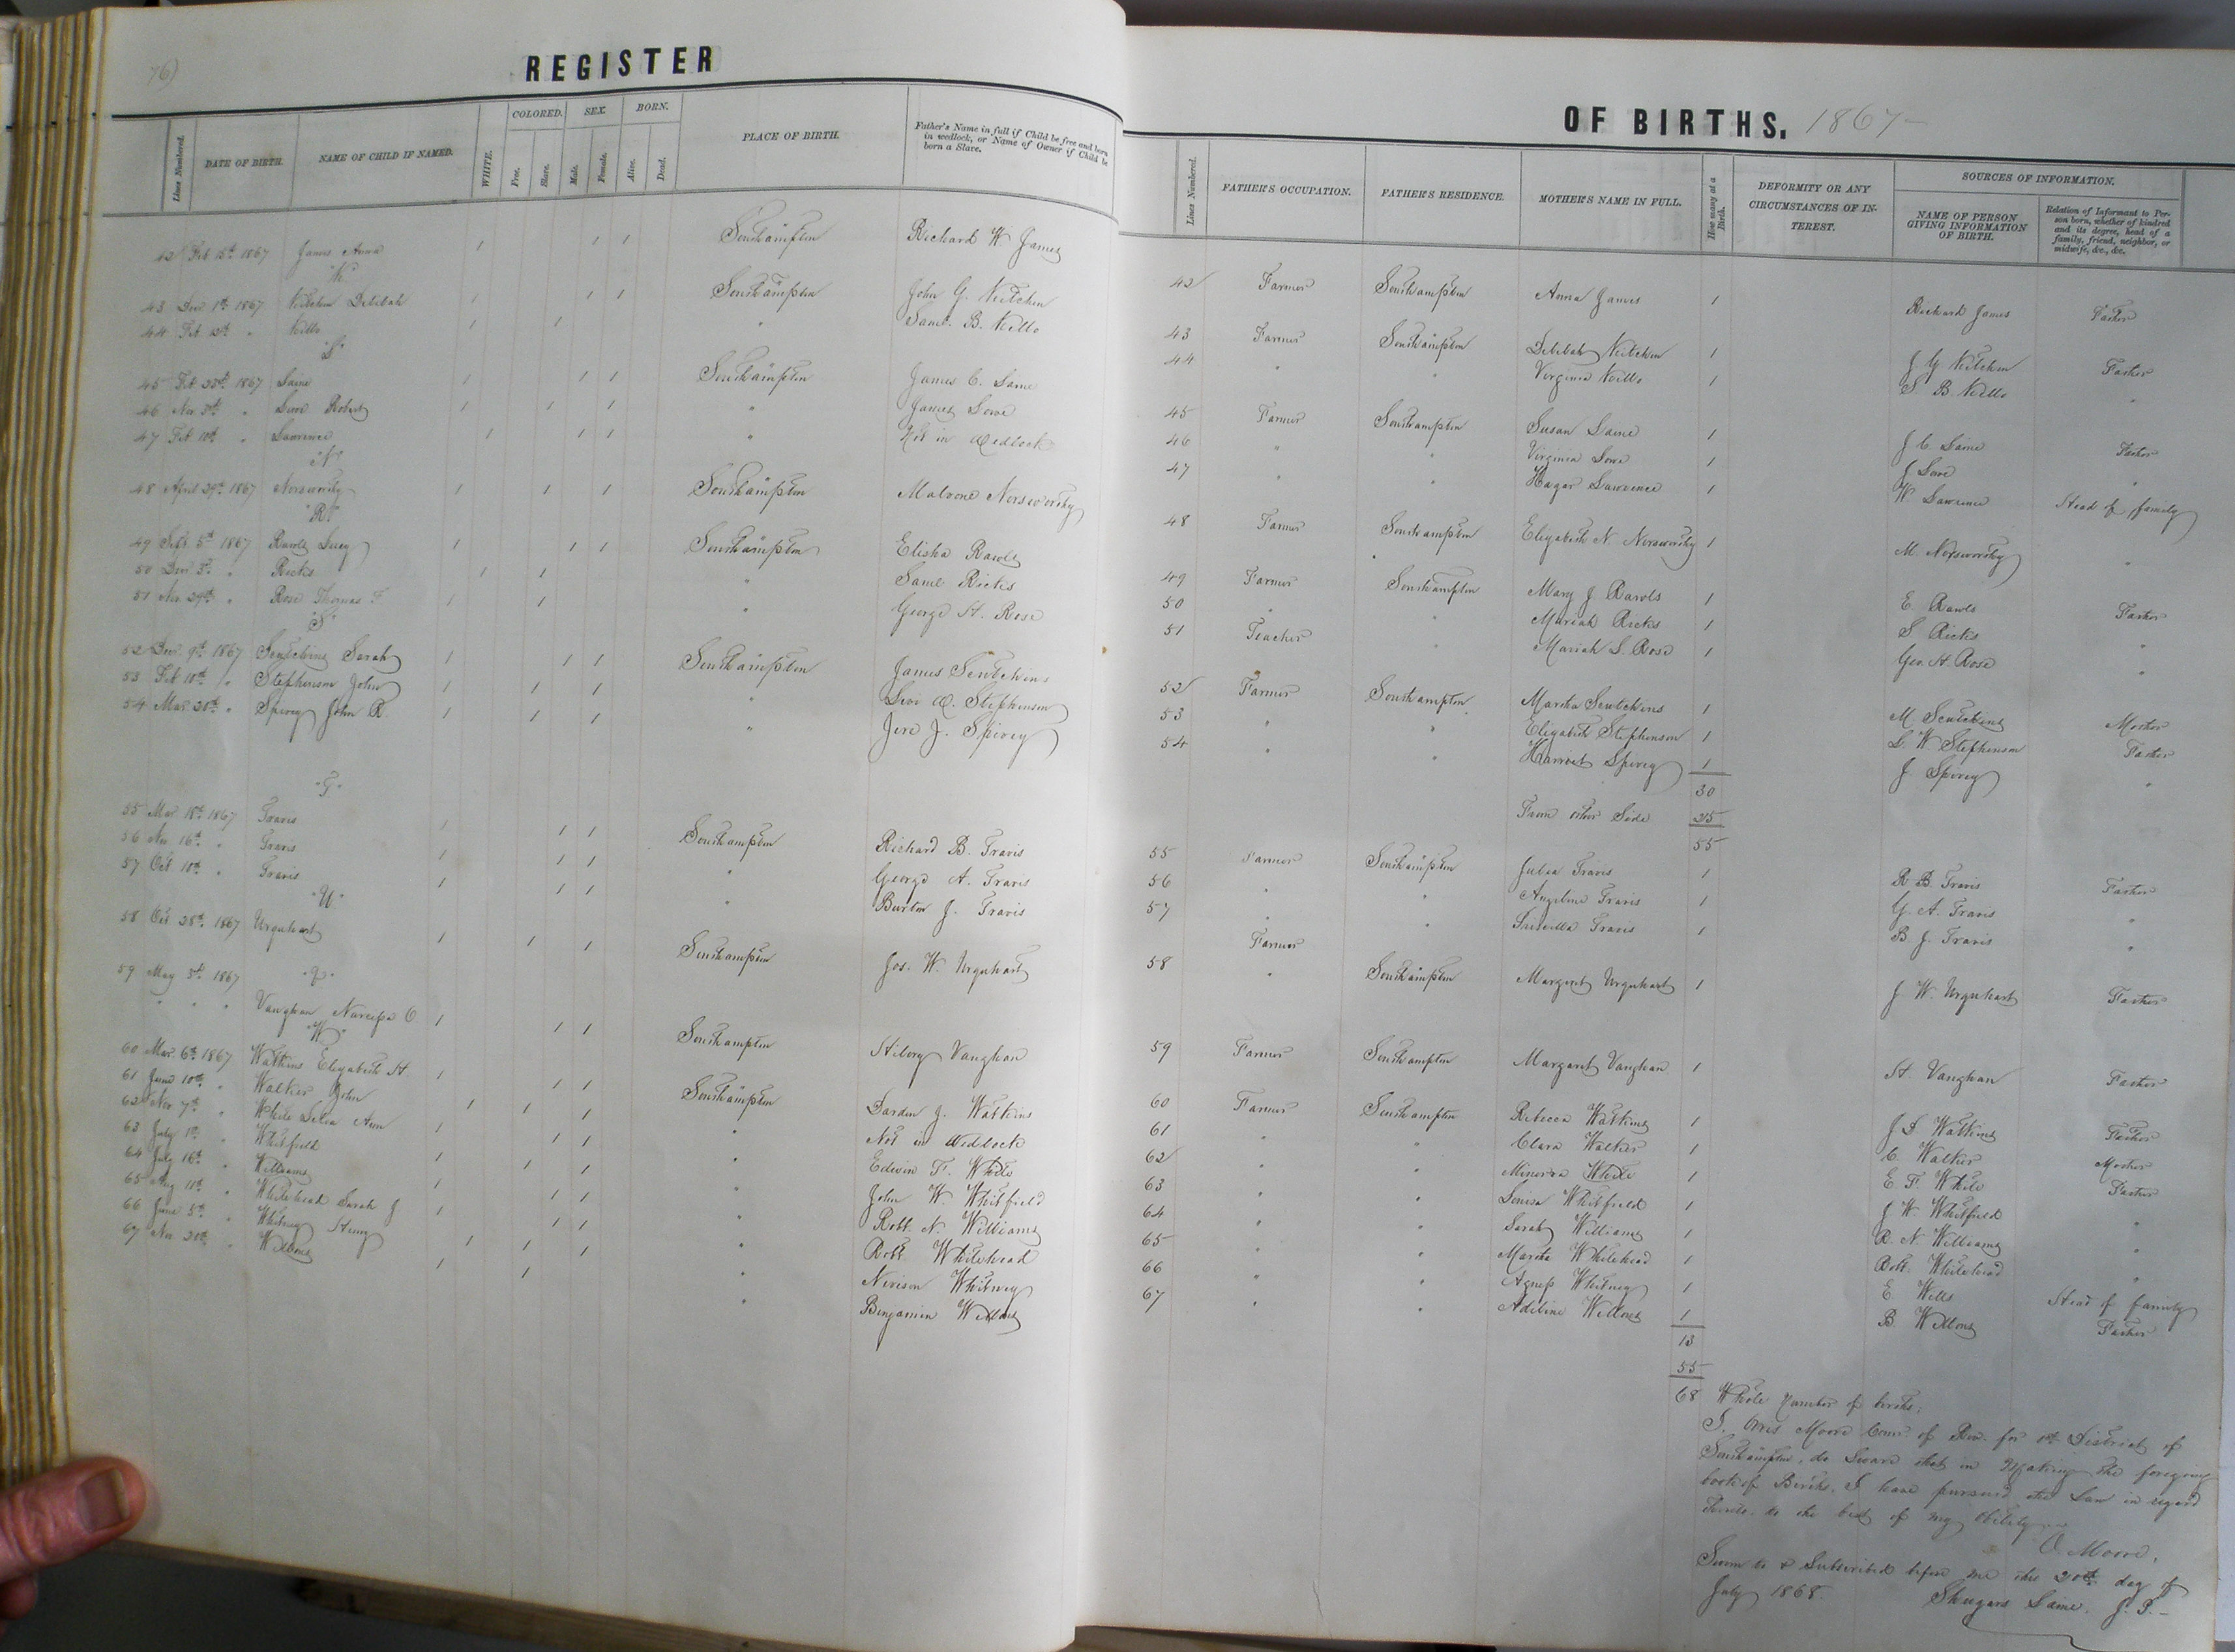 76)
REGISTER
Lines Numbered. DATE OF BIRTH. NAME OF CHILD IF NAMED. WHITE. COLORED. Free. Slave. SEX. Male. Female. BORN. Alive. Dead. PLACE OF BIRTH. Father's Name in full if Child be free and born in wedlock, or Name of Owner if Child be born a Slave.
42 Feb 15th 1867 James Anna / / / Southampton Richard W James
"K"
43 Dec 1st 1867 Kitchen Delilah / / / Southampton John G. Kitchen
44 Feb 12th " Kello / / " Saml. B. Kello
"L"
45 Feb 28th 1867 Laine / / / Southampton James C. Laine
46 Nov 3rd " Lowe Robert / / / " James Lowe
47 Feb 10th " Lawrence / / / " Not in Wedlock
"N"
48 April 29th 1867 Norsworthy / / / Southampton Malrone Norsworthy
"R"
49 Sept. 5th 1867 Rawls Lucy / / / Southampton Elisha Rawls
50 Dec 3rd " Ricks / / " Saml Ricks
51 Nov. 29th " Rose Thomas F / / " George H. Rose
"S"
52 Dec 9th 1867 Scutchins Sarah / / / Southampton James Scutchins
53 Feb 10th " Stephenson John / / / " Levi W. Stephenson
54 Mar. 20th " Spivey John R. / / / " Jere J. Spivey
"T"
55 Mar. 18th 1867 Travis / / / Southampton Richard B. Travis
56 Nov 16th " Travis / / / " George A. Travis
57 Oct 10th " Travis / / / " Burton J. Travis
"U"
58 Oct 28th 1867 Urquhart / / / Southampton Jos. W. Urquhart
"V"
59 May 3rd 1867
" " " Vaughan Narcissa O / / / Southampton Hilory Vaughan
"W"
60 Mar. 6th 1867 Watkins Elizabeth H. / / / Southampton Darden J. Watkins
61 June 10th " Walker John / / / " Not in Wedlock
62 Nov 7th " White Delia Ann / / / " Edwin F. White
63 July 1st " Whitfield / / / " John W. Whitfield
64 July 16th " Williams / / / " Robt N. Williams
65 Aug 11th " Whitehead Sarah J / / / " Robt. Whitehead
66 June 5th " Whitney Henry / / / " Nevison Whitney
67 Nov. 20th " Wellons / / " Benjamin Wellons
OF BIRTHS, 1867-
Lines Numbered. FATHER'S OCCUPATION. FATHER'S RESIDENCE. MOTHER'S NAME IN FULL. How many at a Birth. DEFORMITY OR ANY CIRCUMSTANCES OF INTEREST. SOURCES OF INFORMATION. NAME OF PERSON GIVING INFORMATION OF BIRTH. Relation of Informant to Person born, whether of kindred and its degree, head of a family, friend, neighbor, or midwife, &c., &c.
42 Farmer Southampton Anna James 1 Richard James Father
43 Farmer Southampton Delilah Kitchen 1 J G Kitchen Father
44 " " Virginia Kello 1 S B. Kello "
45 Farmer Southampton Susan Laine 1 J C Laine Father
46 " " Virginia Lowe 1 J Lowe "
47 " " Hagar Lawrence 1 W Lawrence Head of family
48 Farmer Southampton Elizabeth N. Norsworthy 1 M. Norsworthy "
49 Farmer Southampton Mary J Rawls 1 E. Rawls Father
50 " " Mariah Ricks 1 S Ricks "
51 Teacher " Mariah S. Rose 1 Geo. H. Rose "
52 Farmer Southampton Martha Scutchins 1 M. Scutchins Mother
53 " " Elizabeth Stephenson 1 L. W Stephenson Father
54 " " Harriet Spivey 1 J. Spivey "
30
From other Side 25
55
55 Farmer Southampton Julia Travis 1 R. B. Travis Father
56 " " Angeline Travis 1 G. A. Travis "
57 " " Priscilla Travis 1 B. J. Travis "
Farmer
58 " Southampton Margaret Urquhart 1 J W. Urquhart Father
59 Farmer Southampton Margaret Vaughan 1 H. Vaughan Father
60 Farmer Southampton Rebecca Watkins 1 J D Watkins Father
61 " " Clara Walker 1 C. Walker Mother
62 " " Minerva White 1 E. F. White Father
63 " " Louisa Whitfield 1 J W. Whitfield "
64 " " Sarah Williams 1 R. N. Williams "
65 " " Martha Whitehead 1 Robt. Whitehead "
66 " " Agness Whitney 1 E. Wells Head of family
67 " " Adeline Wellons 1 B. Wellons Father
13
55
68 Whole Number of births;
I. Orris Moore Comr. of Rev. for 1st District of
Southampton, do Swear that in Making the foregoing
book of Births. I have pursued the Law in regard
thereto, to the best of my ability.
O. Moore.
Sworn to & Subscribed before me this 20th day of
July 1868. Shugars Laine. J. P.